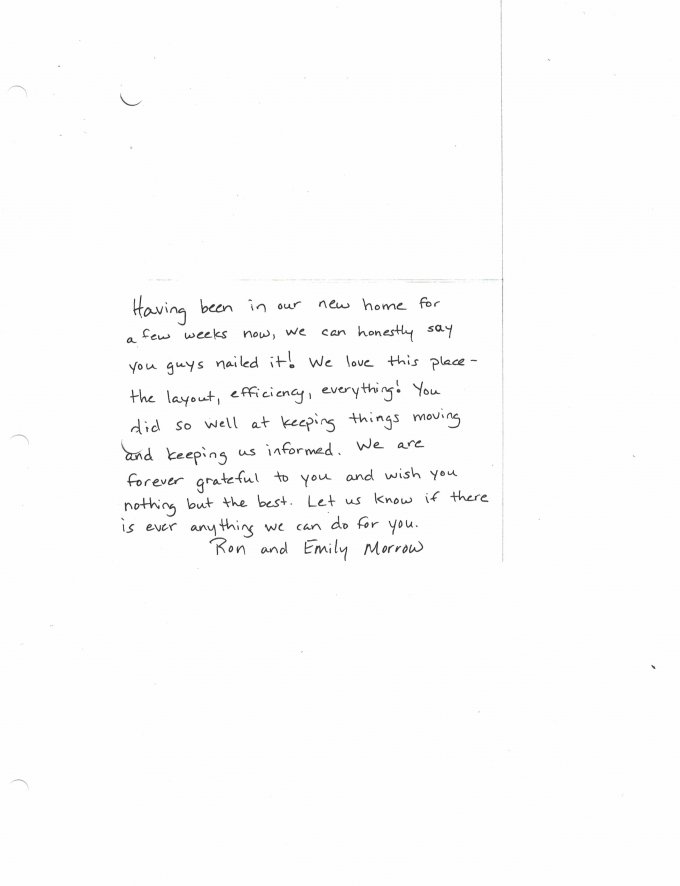 Having been in our new home for
a few weeks now, we can honestly say
you guys nailed it! We love this place -
the layout, efficiency, everything! You
did so well at keeping things moving
and keeping us informed. We are
forever grateful to you and wish you
nothing but the best. Let us know if there
is ever anything we can do for you.
Ron and Emily Morrow